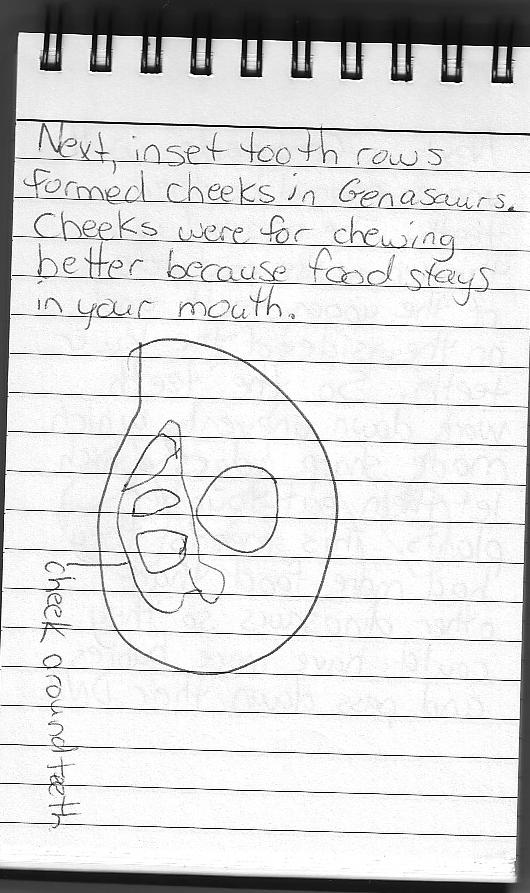 Next, inset tooth rows
formed cheeks in Genasaurs.
Cheeks were for chewing
better because food stays
in your mouth.
cheek around teeth